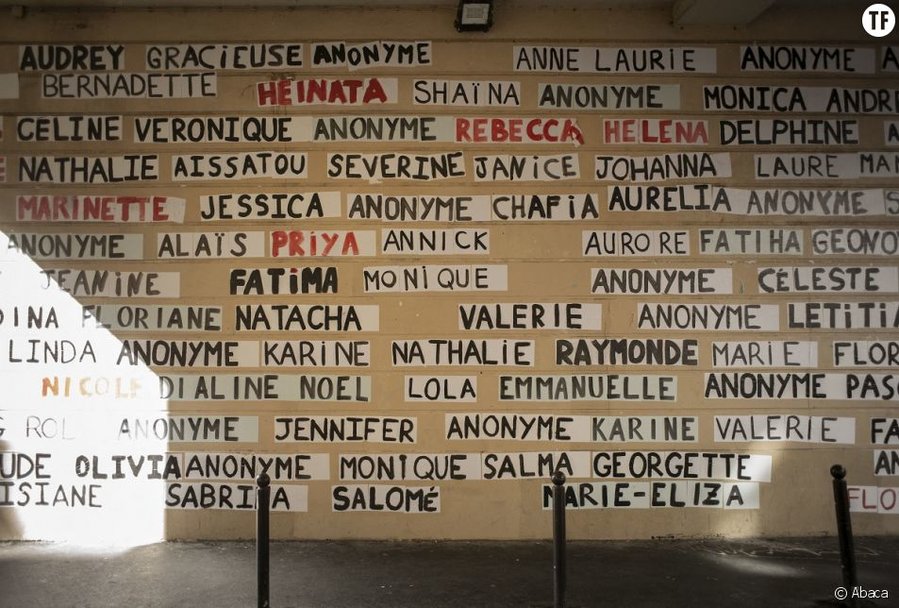 TF
AUDREY GRACIEUSE ANONYME ANNE LAURIE ANONYME A
BERNADETTE HEINATA SHAÏNA ANONYME MONICA ANDR
CELINE VERONIQUE ANONYME REBECCA HELENA DELPHINE
NATHALIE AISSATOU SEVERINE JANICE JOHANNA LAURE MAN
MARINETTE JESSICA ANONYME CHAFIA AURELIA ANONYME S
ANONYME ALAÏS PRIYA ANNICK AURORE FATIHA GEONO
JEANINE FATIMA MONIQUE ANONYME CÉLESTE
DINA FLORIANE NATACHA VALERIE ANONYME LETITIA
LINDA ANONYME KARINE NATHALIE RAYMONDE MARIE FLOR
NICOLE DIALINE NOEL LOLA EMMANUELLE ANONYME PASC
ROL ANONYME JENNIFER ANONYME KARINE VALERIE FA
UDE OLIVIA ANONYME MONIQUE SALMA GEORGETTE AN
ISIANE SABRINA SALOMÉ MARIE-ELIZA FLO
© Abaca